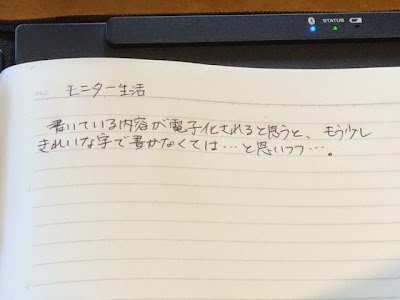 STATUS
TITLE モニター生活
書いている内容が電子化されると思うと、もう少し
きれいな字で書かなくては…と思いつつ…。